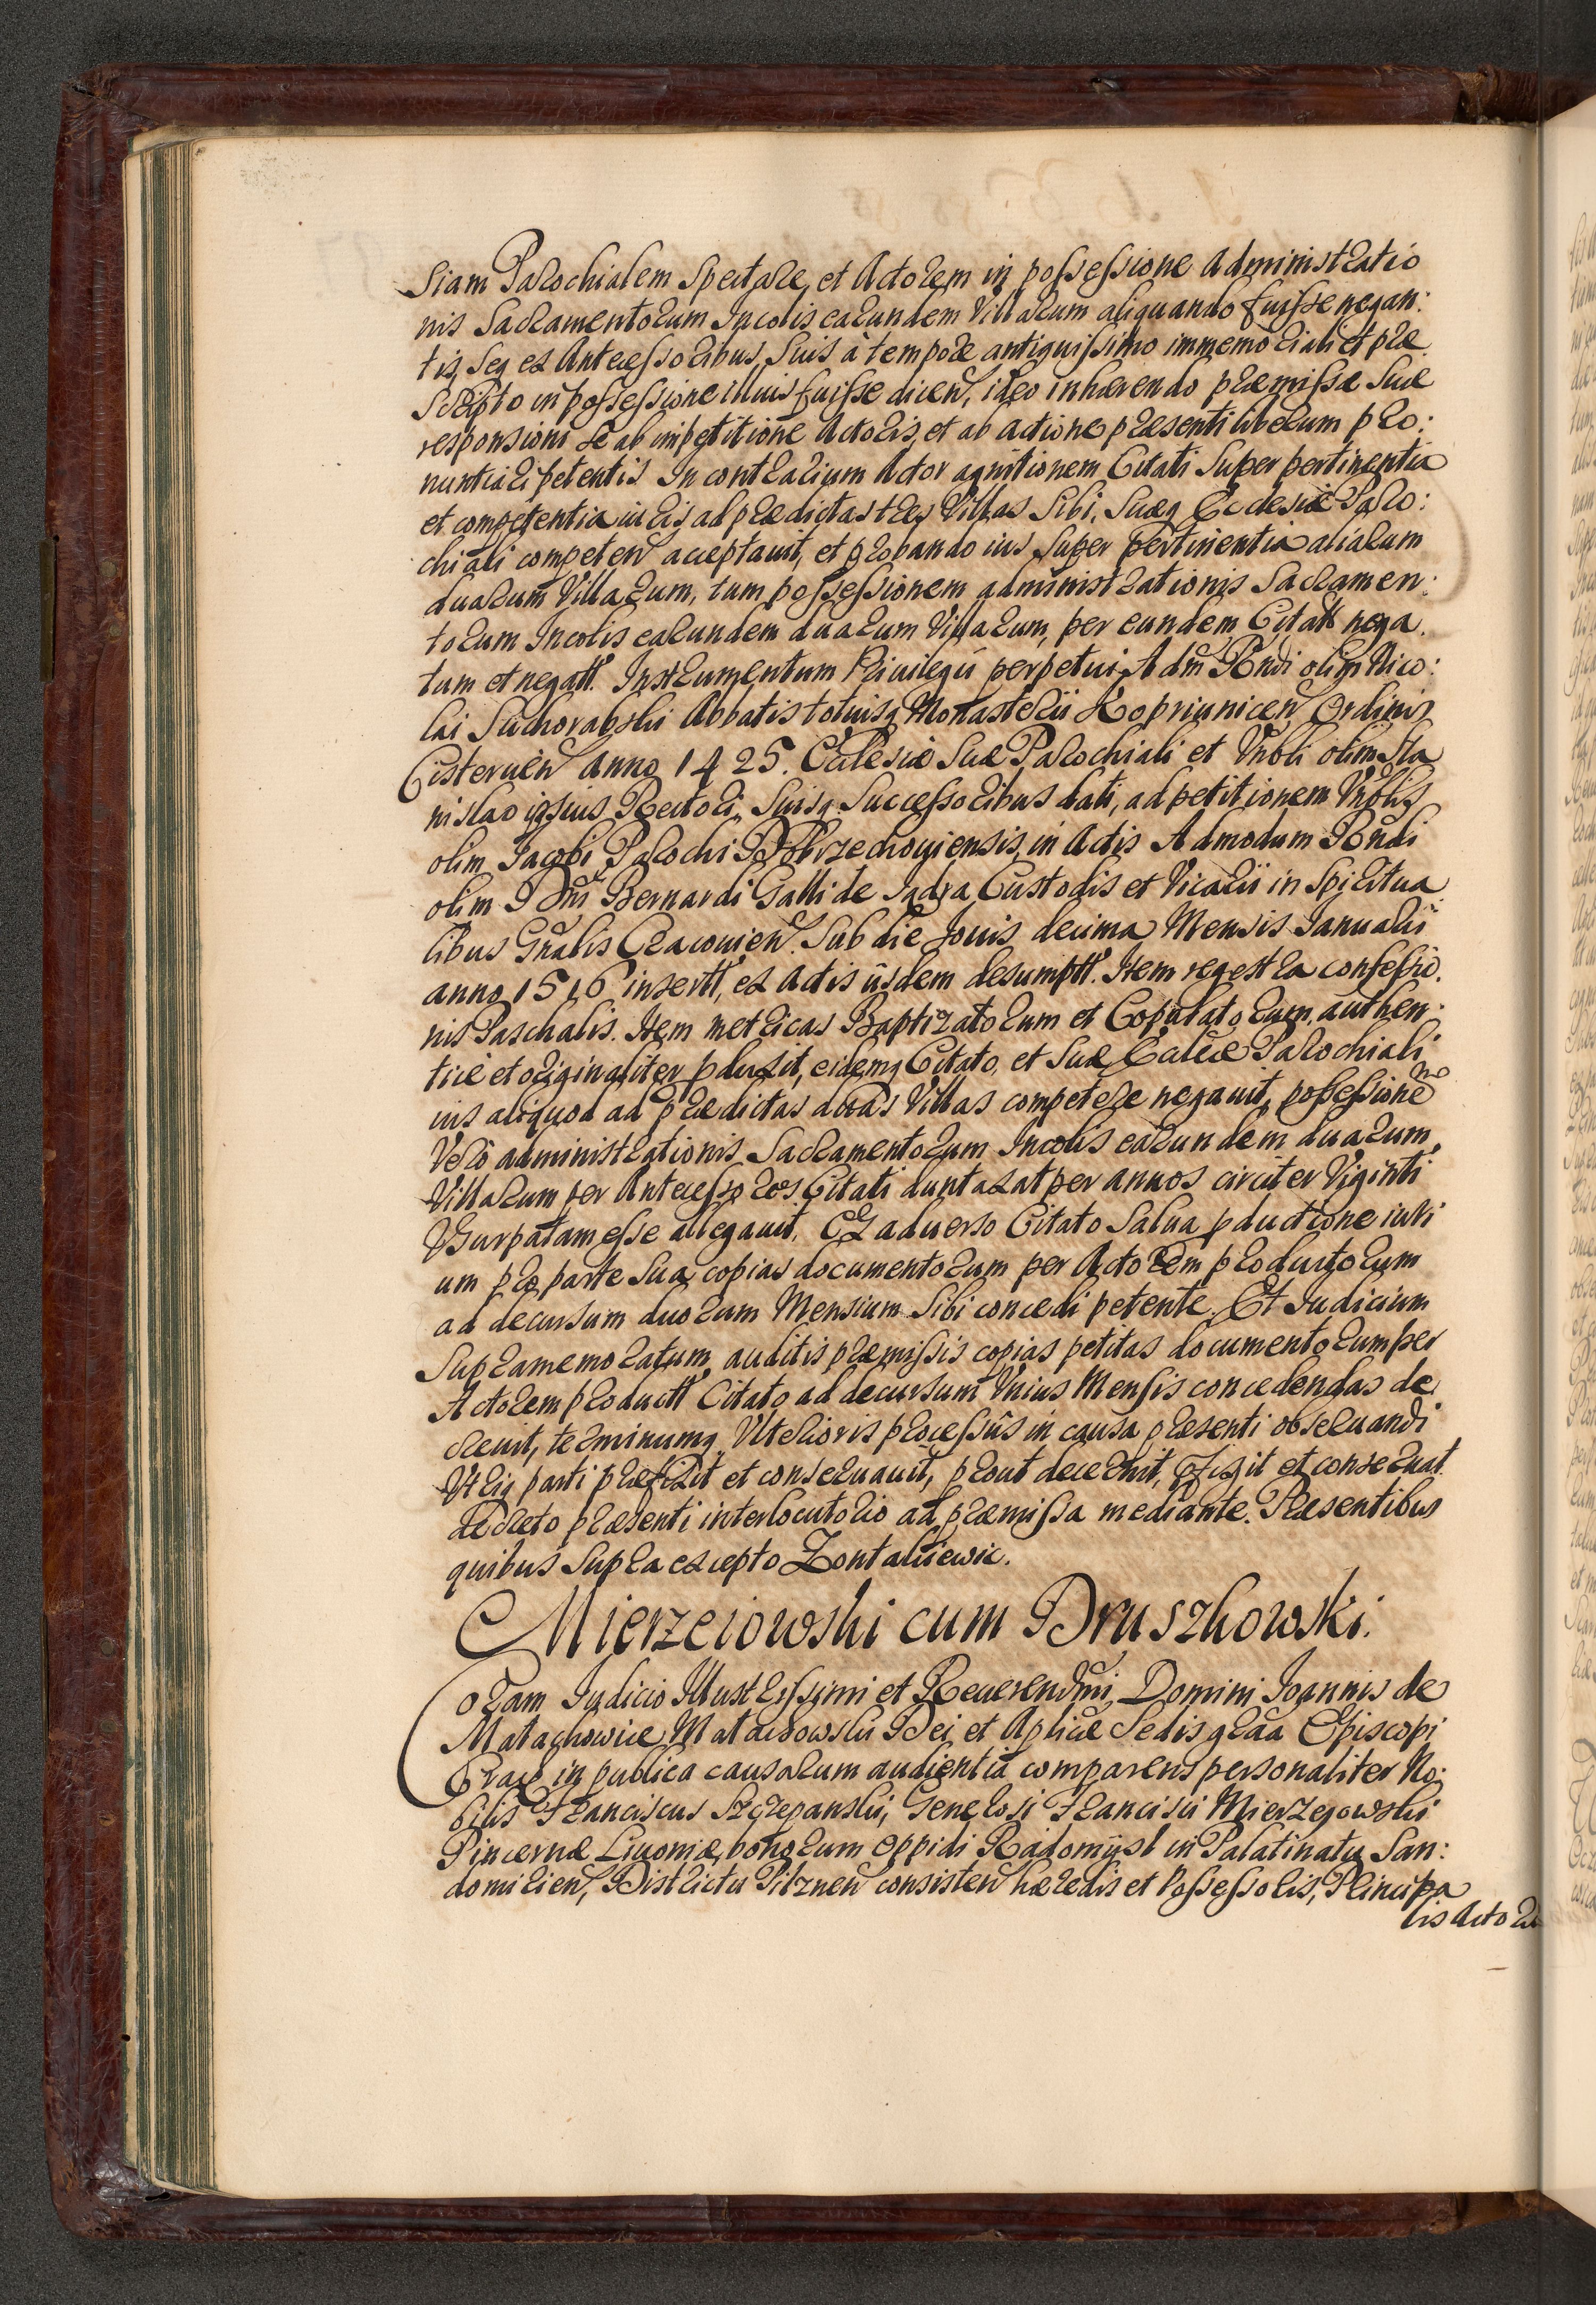 siam Parochialem Spectare, et Actorem in possessione Administratio
nis Sacramentorum Incolis earundem Villarum aliquando fuisse negan:
tis, Seq ex Antecessoribus Suis à tempore antiquissimo immemoriali et præ
scripto in possessione illius fuisse dicen, ideo inhærendo præmissæ Suæ
responsioni Se ab impetitione Actoris, et ab actione præsenti liberum pro:
nuntiari petentis. In contrarium Actor agnitionem Citati Super pertinentia
et competentia iuris ad prædictas tres Villas Sibi, Suæq Ecclesiæ Paro:
chiali competen acceptauit, et probando ius Super pertinentia aliarum
duarum Villarum, tum possessionem administrationis Sacramen:
torum Incolis earundem duarum Villarum, per eundem Citatt nega
tum et negatt. Instrumentum Priuilegii perpetui Adm Rndi olim Nico:
lai Suchorabski Abbatis totiusq Monasterii Koprzunicen Ordinis
Cistercien Anno 1425. Ecclesiæ Suæ Parochiali et Vnbli olim Sta
nislao ipsius Rectori, Suisq Successoribus dati, ad petitionem Vnblis
olim Jacobi Parochi Dobrzechouiensis, in Actis Admodum Rndi
olim Dni Bernardi Galli de Jadra Custodis et Vicarii in Spiritua
libus Gnalis Cracouien. Sub die Jouis decima Mensis Januarii
anno 1516 insertt, ex Actis iisdem desumptt. Item regestra confessio
nis Paschalis. Item metricas Baptizatorum et Copulatorum, authen:
ticè et originaliter pduxit, eidemq Citato, et Suæ Eccliæ Parochiali
ius aliquod ad prædictas duas Villas competere negauit, possessione
Verò administrationis Sacramentorum Incolis earundem duarum
Villarum per Antecessores Citati duntaxat per annos circiter Viginti
Vsurpatam esse allegauit. Ex aduerso Citato Salua pductione iuri
um pro parte Sua, copias documentorum per Actorem productorum
ad decursum duorum Mensium Sibi concedi petente. Et Iudicium
Supramemoratum, auditis præmissis copias petitas documentorum per
Actorem productt Citato ad decursum Vnius Mensis concedendas de
creuit, terminumq Vlterioris processûs in causa præsenti obseruandi
Vtriq parti præfixit et conseruauit, prout decernit, pfigit et conseruat
decreto præsenti interlocutorio ad præmissa mediante. Præsentibus
quibus Supra excepto Zontakiewic.
Mierzeiowski cum Druszkowski.
Coram Iudicio Illustrissimi et Reuerendmi Domini Joannis de
Małachowice Małachowski Dei et Aplicæ Sedis graa Episcopi
Crac in publica causarum audientia comparens personaliter No:
bilis Franciscus Szczepanski, Generosi Francisci Mierzejowski
Pincernæ Liuoniæ, bonorum oppidi Radomyśl in Palatinatu San:
domirien, Districtu Pilznen consisten hæredis et Possessoris, Principa
lis Acto